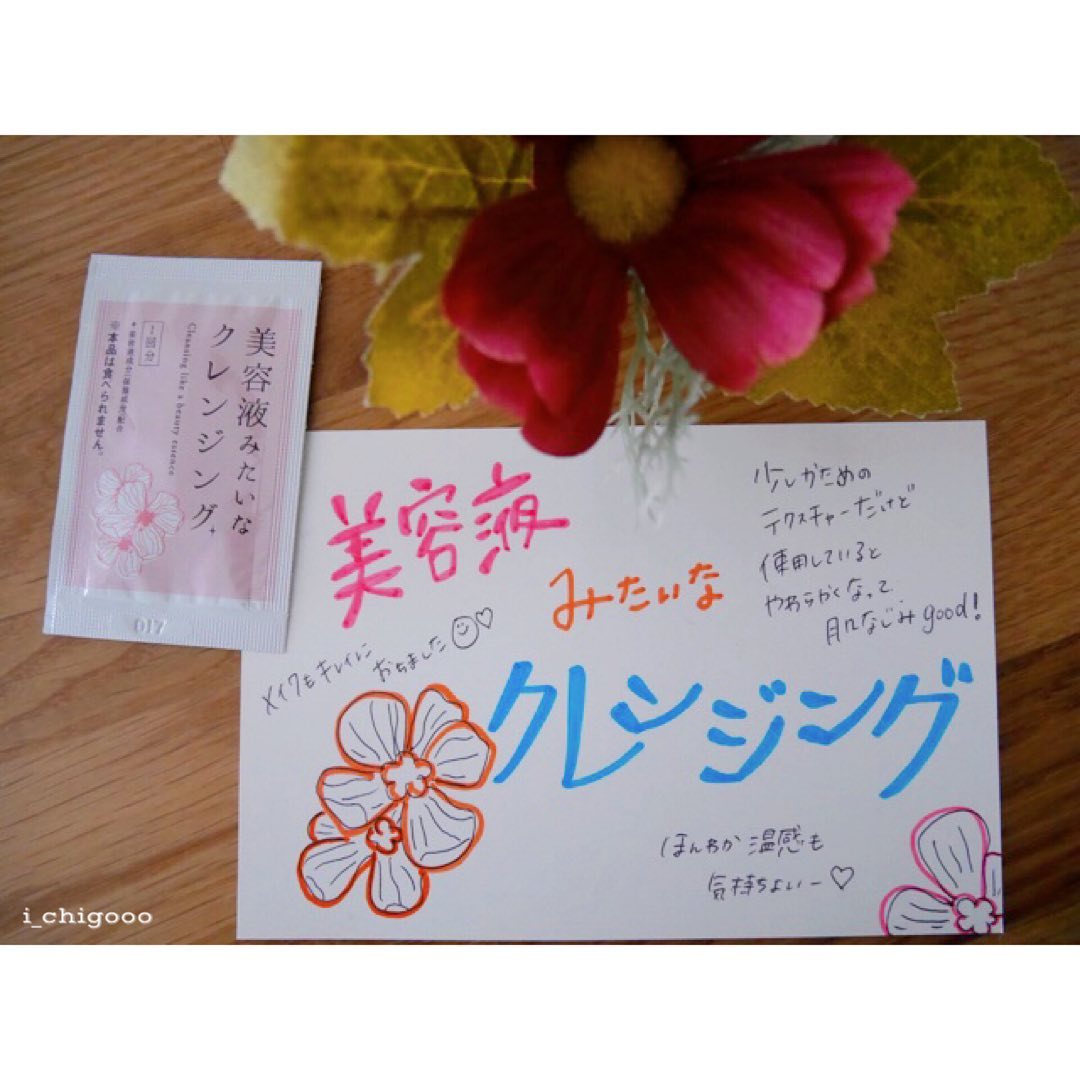 美容液みたいな
クレンジング
Cleansing like a beauty essence
1回分
※本品は食べられません。
017
美容液
みたいな
クレンジング
少しかための
テクスチャーだけど
使用していると
やわらかくなって、
肌なじみgood!
メイクもキレイに
おちました♡
ほんわか温感も
気持ちよいー♡
i_chigooo